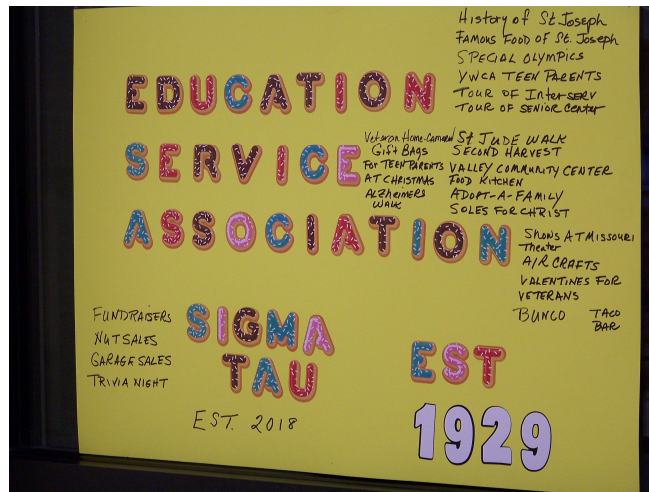 History of St Joseph
FAMOUS FOOD OF St. Joseph
SPECIAL OLYMPICS
YWCA TEEN PARENTS
TOUR OF Inter-SERV
TOUR OF SENIOR CENTER
EDUCATION
Veteran Home-Cameron
Gift BAGS
FOR TEEN PARENTS
AT CHRISTMAS
ALZHEIMERS
WALK
St JUDE WALK
SECOND HARVEST
VALLEY COMMUNITY CENTER
FOOD KITCHEN
ADOPT-A-FAMILY
SOLES FOR CHRIST
SERVICE
ASSOCIATION
SHOWS AT MISSOURI
Theater
AIR CRAFTS
VALENTINES FOR
VETERANS
BUNCO
TACO
BAR
FUNDRAISERS
NUT SALES
GARAGE SALES
TRIVIA NIGHT
SIGMA
TAU
EST. 2018
EST
1929